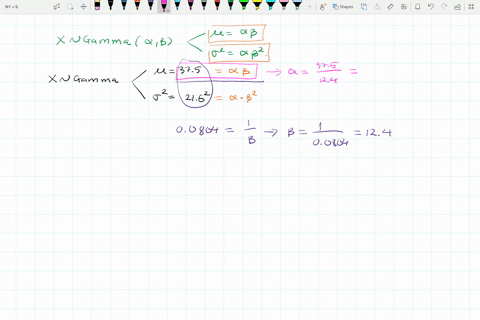 N1 + b
Shapes
X ~ Gamma (α, β)
μ = αβ
σ² = αβ²
X ~ Gamma
μ = 37.5 = αβ → α = 37.5 / 12.4 =
σ² = 21.6² = α·β²
0.0804 = 1 / β → β = 1 / 0.0804 = 12.4